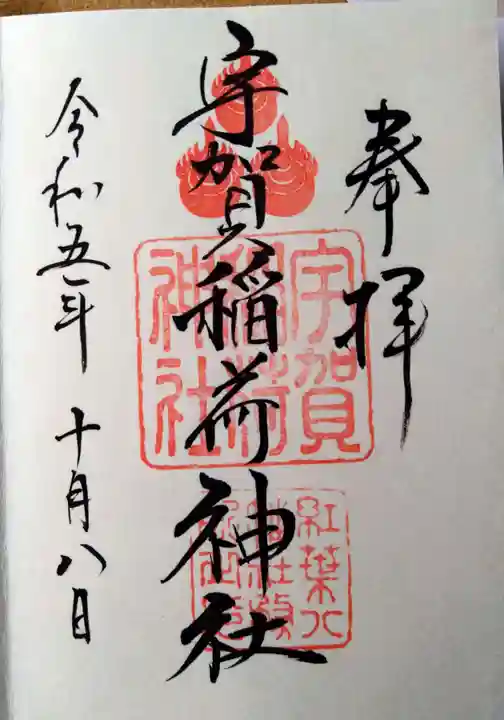 奉拝
宇賀稲荷神社
宇賀
稲荷
神社
紅葉八
令和五年 十月八日